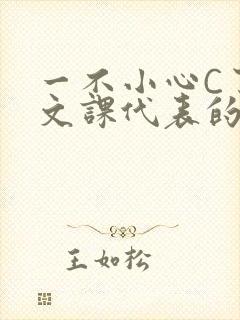 一不小心C
文課代表的
王如松